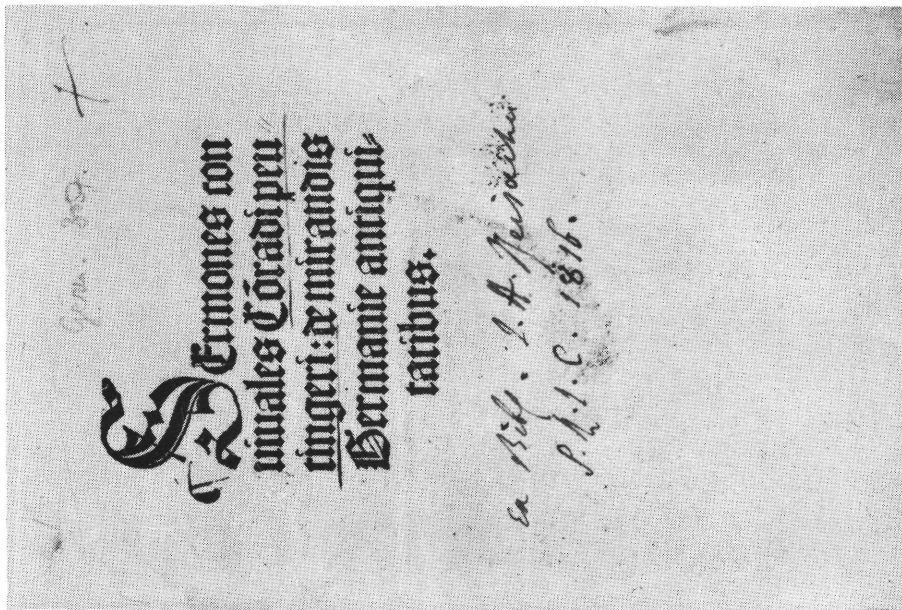 SErmones con
uiuales Cōradi peu
tingeri: de mirandis
Germanie antiqui⸗
tatibus.
Ex Bibl. J. A.
P. R. I. C. 1816.